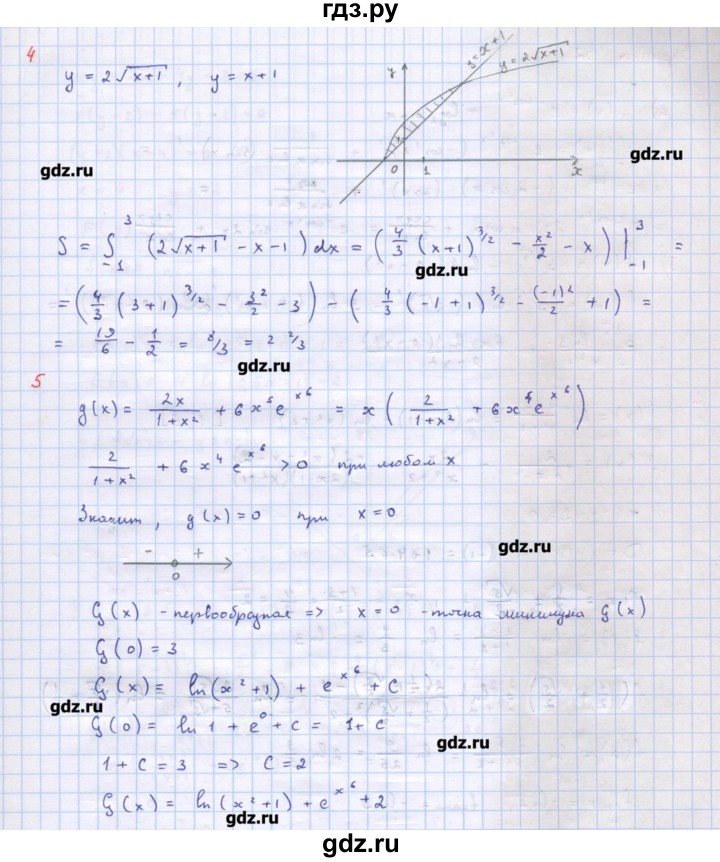 гдз.ру
4
y = 2√(x+1) , y = x+1
y = x+1
y = 2√(x+1)
y
0 1 x
gdz.ru
gdz.ru
S = ∫₋₁³ (2√(x+1) - x - 1) dx = (4/3 (x+1)^(3/2) - x²/2 - x) |₋₁³ =
gdz.ru
= (4/3 (3+1)^(3/2) - 3²/2 - 3) - (4/3 (-1+1)^(3/2) - (-1)²/2 + 1) =
= 19/6 - 1/2 = 8/3 = 2 2/3
gdz.ru
5
g(x) = 2x/(1+x²) + 6x⁵e^(x⁶) = x (2/(1+x²) + 6x⁴e^(x⁶))
2/(1+x²) + 6x⁴ e^(x⁶) > 0 при любом x
Значит, g(x) = 0 при x = 0
gdz.ru
- +
0
G(x) - первообразная => x = 0 - точка минимума G(x)
G(0) = 3
G(x) = ln(x²+1) + e^(x⁶) + C
gdz.ru
G(0) = ln 1 + e⁰ + C = 1 + C
gdz.ru
1 + C = 3 => C = 2
G(x) = ln(x²+1) + e^(x⁶) + 2
gdz.ru
gdz.ru